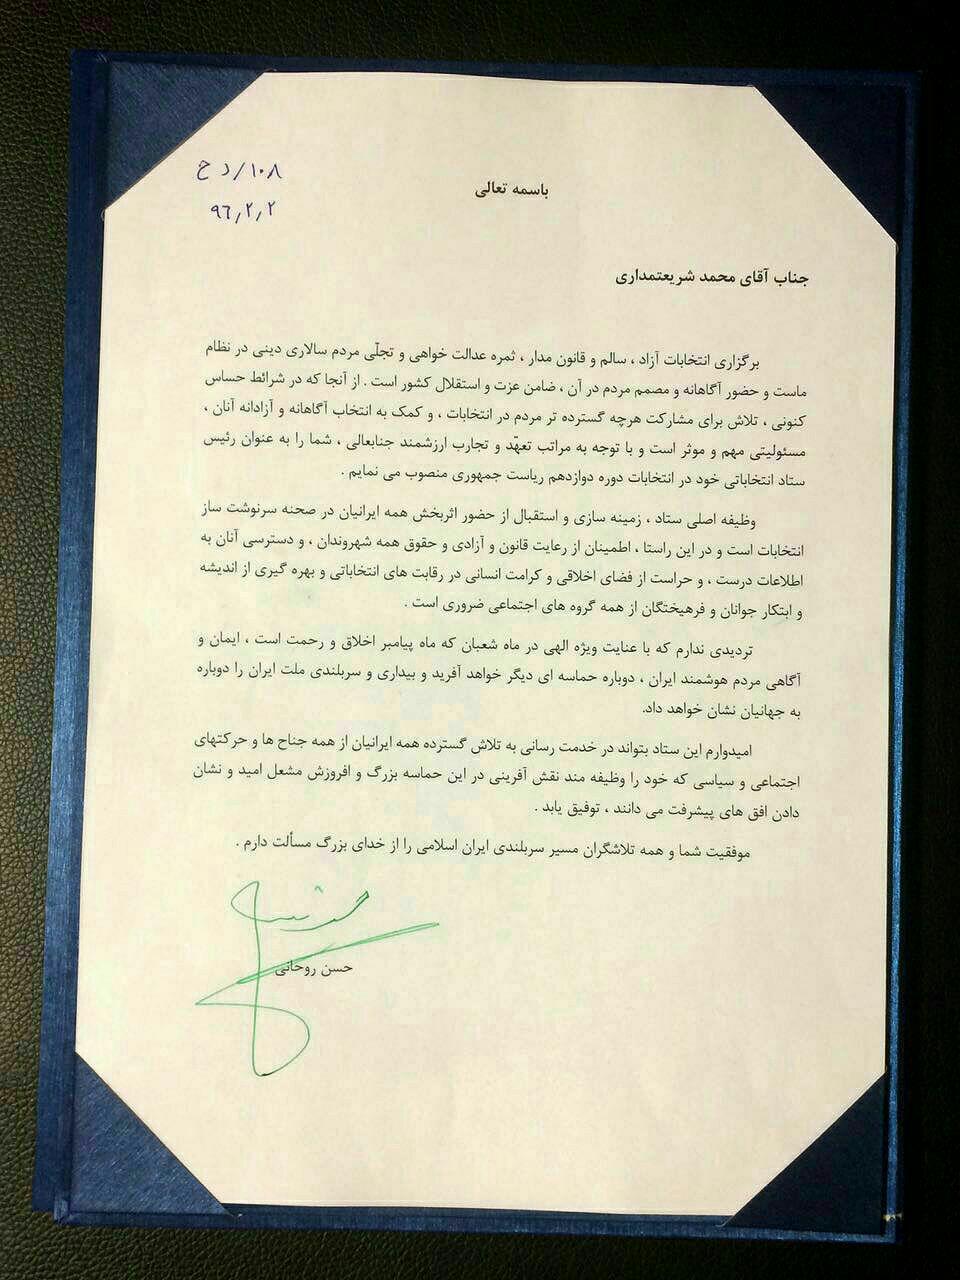 ۱۰۸/د ح
۹۶٫۲٫۲
باسمه تعالی
جناب آقای محمد شریعتمداری
برگزاری انتخابات آزاد ، سالم و قانون مدار ، ثمره عدالت خواهی و تجلّی مردم سالاری دینی در نظام
ماست و حضور آگاهانه و مصمم مردم در آن ، ضامن عزت و استقلال کشور است . از آنجا که در شرائط حساس
کنونی ، تلاش برای مشارکت هرچه گسترده تر مردم در انتخابات ، و کمک به انتخاب آگاهانه و آزادانه آنان ،
مسئولیتی مهم و موثر است و با توجه به مراتب تعهّد و تجارب ارزشمند جنابعالی ، شما را به عنوان رئیس
ستاد انتخاباتی خود در انتخابات دوره دوازدهم ریاست جمهوری منصوب می نمایم .
وظیفه اصلی ستاد ، زمینه سازی و استقبال از حضور اثربخش همه ایرانیان در صحنه سرنوشت ساز
انتخابات است و در این راستا ، اطمینان از رعایت قانون و آزادی و حقوق همه شهروندان ، و دسترسی آنان به
اطلاعات درست ، و حراست از فضای اخلاقی و کرامت انسانی در رقابت های انتخاباتی و بهره گیری از اندیشه
و ابتکار جوانان و فرهیختگان از همه گروه های اجتماعی ضروری است .
تردیدی ندارم که با عنایت ویژه الهی در ماه شعبان که ماه پیامبر اخلاق و رحمت است ، ایمان و
آگاهی مردم هوشمند ایران ، دوباره حماسه ای دیگر خواهد آفرید و بیداری و سربلندی ملت ایران را دوباره
به جهانیان نشان خواهد داد.
امیدوارم این ستاد بتواند در خدمت رسانی به تلاش گسترده همه ایرانیان از همه جناح ها و حرکتهای
اجتماعی و سیاسی که خود را وظیفه مند نقش آفرینی در این حماسه بزرگ و افروزش مشعل امید و نشان
دادن افق های پیشرفت می دانند ، توفیق یابد .
موفقیت شما و همه تلاشگران مسیر سربلندی ایران اسلامی را از خدای بزرگ مسألت دارم .
حسن روحانی